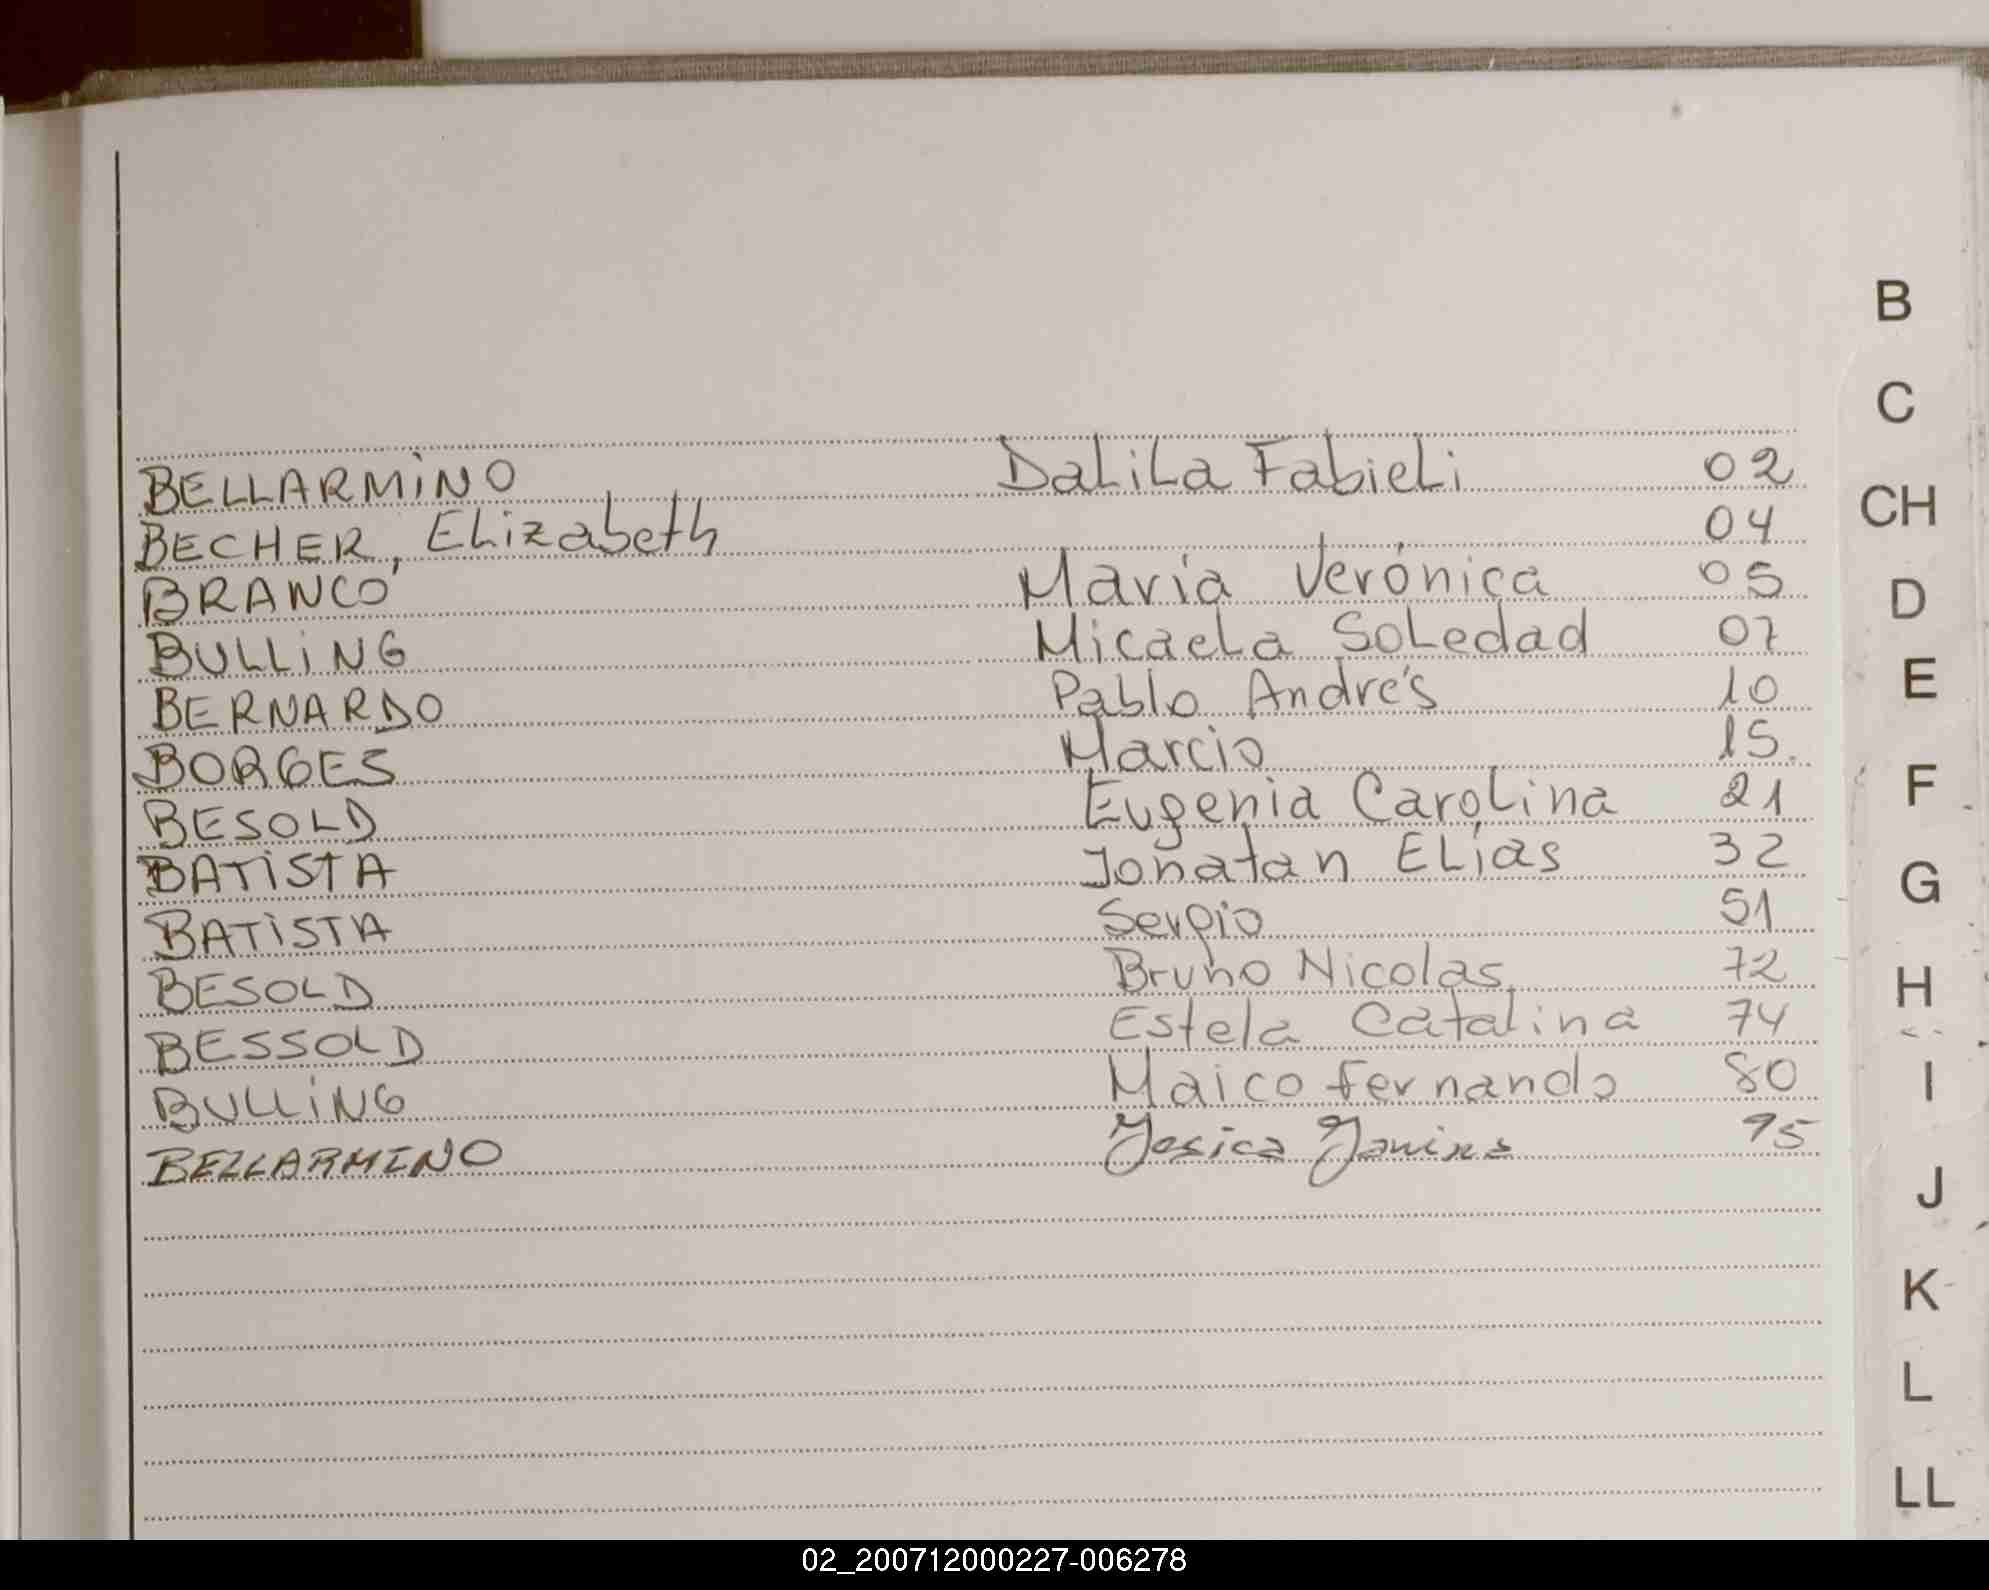 BELLARMINO DaLiLa FabieLi 02
BECHER, ELizabeth 04
BRANCO María Verónica 05
BULLING Micaela SoLedad 07
BERNARDO Pablo Andrés 10
BORGES Marcio 15.
BESOLD Eugenia Carolina 21
BATISTA Jonatan ELías 32
BATISTA Sergio 51
BESOLD Bruno Nicolas 72
BESSOLD Estela Catalina 74
BULLING Maico Fernando 80
BELLARMINO Yesica Yanina 95
B
C
CH
D
E
F
G
H
I
J
K
L
LL
02_200712000227-006278